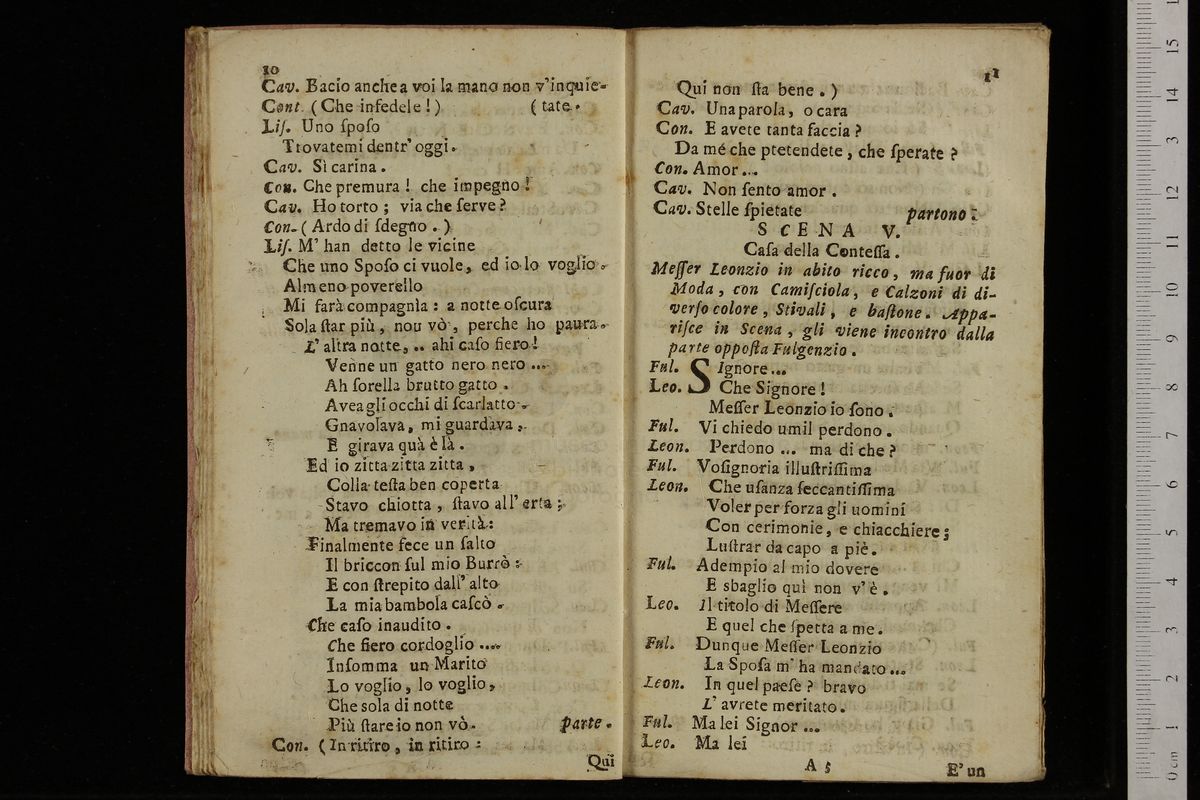 10
Cav. Bacio anche a voi la mano non v'inquie-
Cont. (Che infedele!) (tate.
Liſ. Uno ſpoſo
Trovatemi dentr' oggi.
Cav. Sì carina.
Con. Che premura! che impegno!
Cav. Ho torto; via che ſerve?
Con. (Ardo di ſdegno.)
Liſ. M' han detto le vicine
Che uno Spoſo ci vuole, ed io lo voglio.
Almeno poverello
Mi farà compagnìa: a notte oſcura
Sola ſtar più, nou vò, perche ho paura.
L' altra notte, .. ahi caſo fiero!
Venne un gatto nero nero ...
Ah ſorella brutto gatto.
Avea gli occhi di ſcarlatto.
Gnavolava, mi guardava,
E girava quà è là.
Ed io zitta zitta zitta,
Colla teſta ben coperta
Stavo chiotta, ſtavo all' erta;
Ma tremavo in verità:
Finalmente fece un ſalto
Il briccon ſul mio Burrò:
E con ſtrepito dall' alto
La mia bambola caſcò.
Che caſo inaudito.
Che fiero cordoglio ....
Inſomma un Marito
Lo voglio, lo voglio,
Che sola di notte
Più ſtare io non vò. parte.
Con. (In ritiro, in ritiro:
Qui
11
Qui non ſta bene.)
Cav. Una parola, o cara
Con. E avete tanta faccia?
Da mé che ptetendete, che ſperate?
Con. Amor...
Cav. Non ſento amor.
Cav. Stelle ſpietate partono.
SCENA V.
Caſa della Conteſſa.
Meſſer Leonzio in abito ricco, ma fuor di
Moda, con Camiſciola, e Calzoni di di-
verſo colore, Stivali, e baſtone. Appa-
riſce in Scena, gli viene incontro dalla
parte oppoſta Fulgenzio.
Ful. SIgnore...
Leo. Che Signore!
Meſſer Leonzio io ſono.
Ful. Vi chiedo umil perdono.
Leon. Perdono ... ma di che?
Ful. Voſignoria illuſtriſſima
Leon. Che uſanza ſeccantiſſima
Voler per forza gli uomini
Con cerimonie, e chiacchiere;
Luſtrar da capo a piè.
Ful. Adempio al mio dovere
E sbaglio quì non v' è.
Leo. Il titolo di Meſſere
E quel che ſpetta a me.
Ful. Dunque Meſſer Leonzio
La Spoſa m' ha mandato...
Leon. In quel paeſe? bravo
L' avrete meritato.
Ful. Ma lei Signor ...
Leo. Ma lei
A 5 E' un